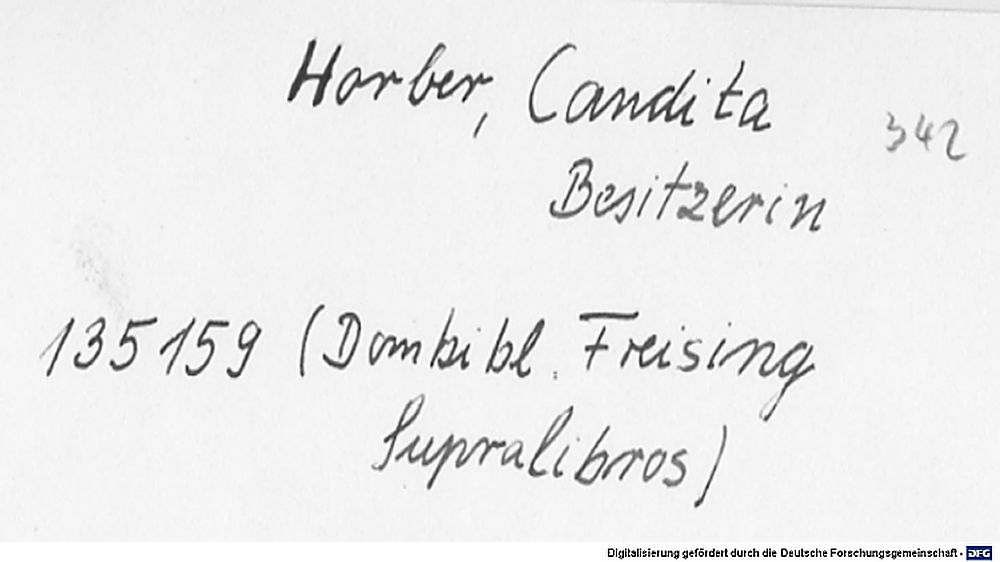 Horber, Candita
342
Besitzerin
135159 (Dombibl. Freising
Supralibros)
Digitalisierung gefördert durch die Deutsche Forschungsgemeinschaft - DFG